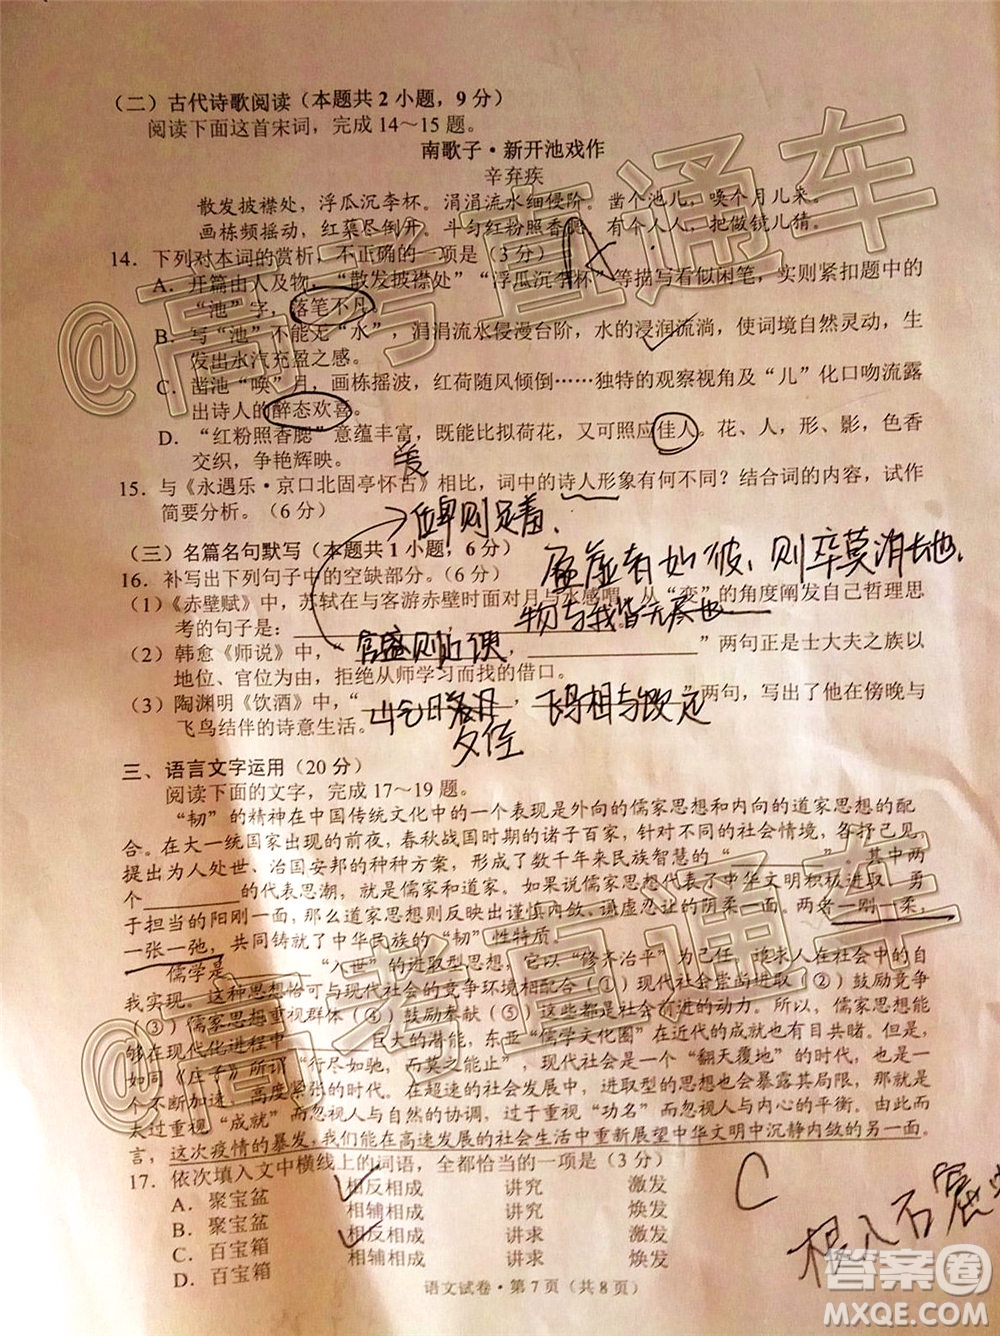 （二）古代诗歌阅读（本题共2小题，9分）
阅读下面这首宋词，完成14～15题。
南歌子·新开池戏作
辛弃疾
散发披襟处，浮瓜沉李杯。涓涓流水细侵阶。凿个池儿，唤个月儿来。
画栋频摇动，红蕖尽倒开。斗匀红粉照香腮。有个人人，把做镜儿猜。
14．下列对本词的赏析，不正确的一项是（3分）
A．开篇由人及物，“散发披襟处”“浮瓜沉李杯”等描写看似闲笔，实则紧扣题中的
“池”字，落笔不凡
B．写“池”不能无“水”，涓涓流水侵漫台阶，水的浸润流淌，使词境自然灵动，生
发出水汽充盈之感。
C．凿池“唤”月，画栋摇波，红荷随风倾倒……独特的观察视角及“儿”化口吻流露
出诗人的醉态欢喜。
D．“红粉照香腮”意蕴丰富，既能比拟荷花，又可照应佳人。花、人，形、影，色香
交织，争艳辉映。
15．与《永遇乐·京口北固亭怀古》相比，词中的诗人形象有何不同？结合词的内容，试作
简要分析。（6分）
位卑则足羞．
（三）名篇名句默写（本题共1小题，6分）
盈虚者如彼，则卒莫消长也，
16．补写出下列句子中的空缺部分。（6分）
（1）《赤壁赋》中，苏轼在与客游赤壁时面对月与水感喟，从“变”的角度阐发自己哲理思
考的句子是：
物与我皆无尽也
（2）韩愈《师说》中，“官盛则近谀，”两句正是士大夫之族以
地位、官位为由，拒绝从师学习而找的借口。
（3）陶渊明《饮酒》中，“山气日，飞鸟相与”两句，写出了他在傍晚与
飞鸟结伴的诗意生活。
夕佳
三、语言文字运用（20分）
阅读下面的文字，完成17～19题。
“韧”的精神在中国传统文化中的一个表现是外向的儒家思想和内向的道家思想的配
合。在大一统国家出现的前夜，春秋战国时期的诸子百家，针对不同的社会情境，各抒己见，
提出为人处世、治国安邦的种种方案，形成了数千年来民族智慧的“”。其中两
个的代表思潮，就是儒家和道家。如果说，儒家思想代表了中华文明积极进取、勇
于担当的阳刚一面，那么道家思想则反映出谨慎内敛、谦虚忍让的阴柔一面。两者一刚一柔，
一张一弛，共同铸就了中华民族的“韧”性特质。
儒学是“入世”的进取型思想，它以“修齐治平”为己任，追求人在社会中的
激发。这种思想恰可与现代社会的竞争环境相配合（①）以现代社会崇尚进取（②）鼓励竞争
（③）儒家思想重视群体（④）鼓励奉献（⑤）这些都是社会前进的动力。所以，儒家思想能
够在现代化进程中巨大的潜能，东亚“儒学文化圈”在近代的成功有目共睹。但是，
如同《庄子》所讲“行尽如驰，而莫之能止”，现代社会是一个“翻天覆地”的社会，
个不断加速、高度紧张的时代。在超速的社会发展中，进取型的思想也会暴露其局限，
过于重视“成就”而忽视人与自然的协调，过于重视“功名”而忽视人与内心的平衡。由
言，这次疫情的暴发，我们能在高速发展的社会生活中重新展望中华文明中沉静内敛的另一面。
17．依次填入文中横线上的词语，全都恰当的一项是（3分）
A．聚宝盆 相反相成 讲究 激发
B．聚宝盆 相辅相成 讲究 焕发
C．百宝箱 相反相成 讲求 激发
D．百宝箱 相辅相成 讲求 焕发
C
语文试卷·第7页（共8页）
@高考直通车
@高考直通车
答案圈
MXQE.COM